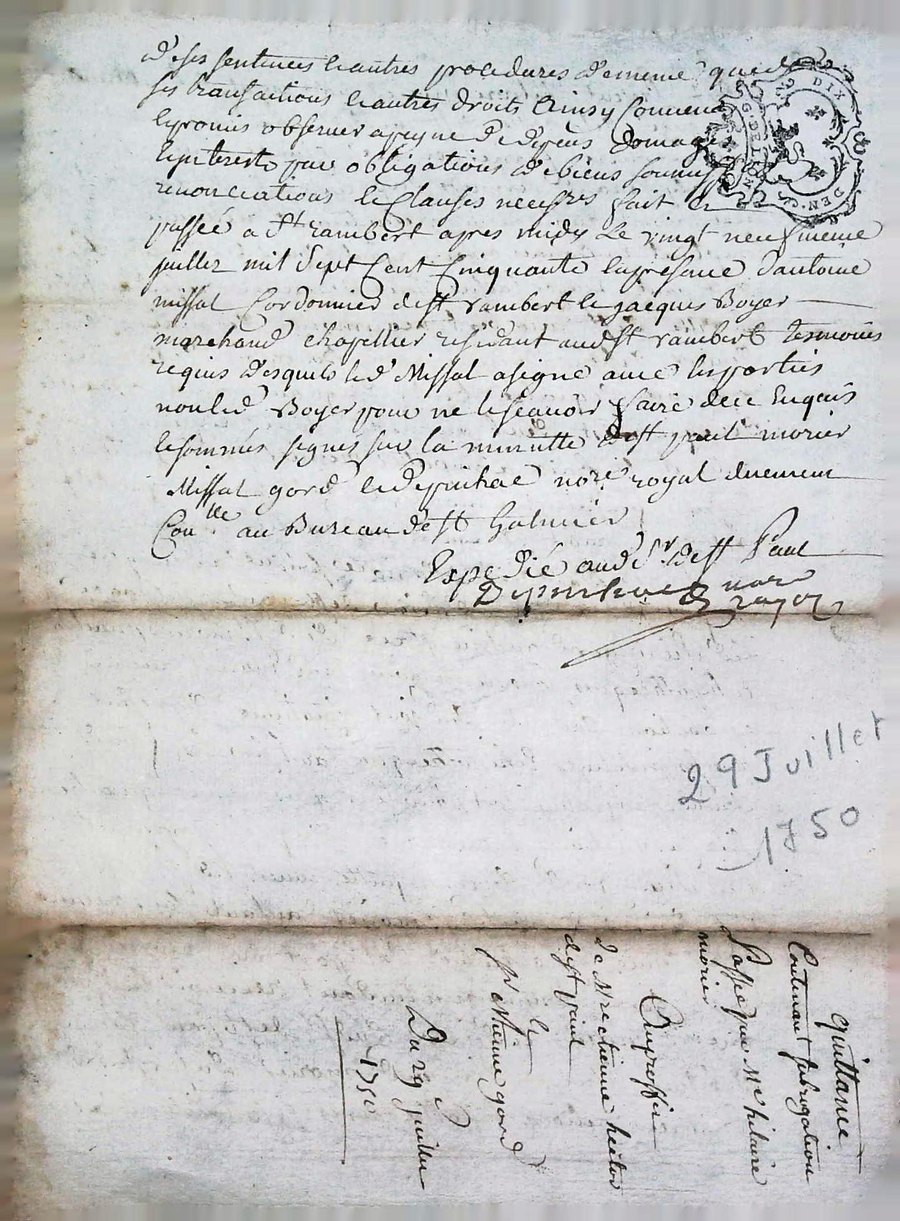 d'ses sentences & autres procedures de meme que de
ses transactions & autres droits & ainsy convenu
& promis observer a peyne de depens domages
& interests par obligations de biens soumissions
renonciations & clauses necessres fait &
passée a St rambert apres midy le vingt neufvieme
juillet mil sept cent cinquante en presance d'antoine
missal cordonnier de St rambert & jacques Boyer
marchand chapellier residant audt St rambert tesmoins
requis desquels led Missal a signé avec les parties
non led Boyer pour ne le scavoir faire de ce enquis
& sommés signés sur la minutte de St paul morier
Missal gord & Depinhac nore royal duement
Conlle au Bureau de St Galmier
Expedié aud Sr de St Paul
Depinhac nore royal
DIX DEN.
G. DE LYON
29 Juillet
1750
quittance
Contenant subrogation
Passée par Me hilaire
morier
Au proffit
de Mre etienne hector
de St paul
&
Sr etienne gord
Du 29 juillet
1750